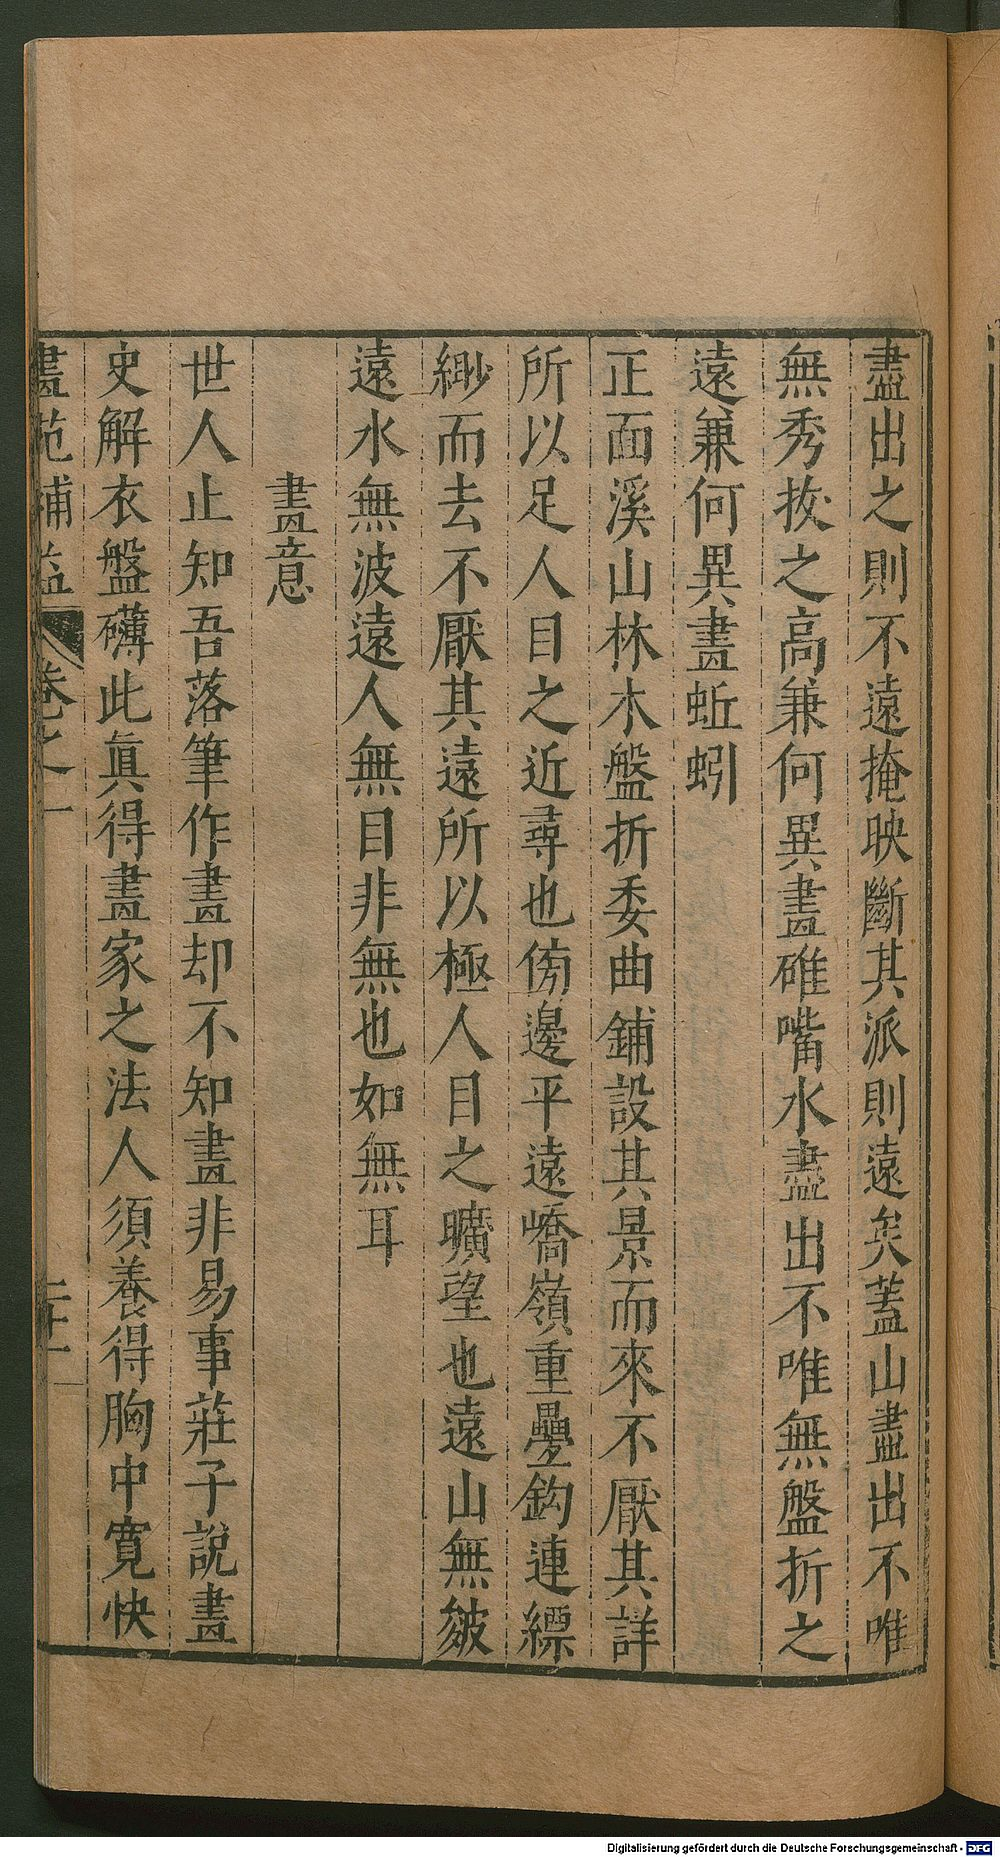 盡出之則不遠掩映斷其派則遠矣蓋山盡出不唯
無秀拔之高兼何異畫碓嘴水盡出不唯無盤折之
遠兼何異畫蚯蚓
正面溪山林木盤折委曲鋪設其景而來不厭其詳
所以足人目之近尋也傍邊平遠嶠嶺重疊鈎連縹
緲而去不厭其遠所以極人目之曠望也遠山無皴
遠水無波遠人無目非無也如無耳
畫意
世人止知吾落筆作畫却不知畫非易事莊子說畫
史解衣盤礴此眞得畫家之法人須養得胸中寬快
畫苑補益 卷之一
Digitalisierung gefördert durch die Deutsche Forschungsgemeinschaft - DFG